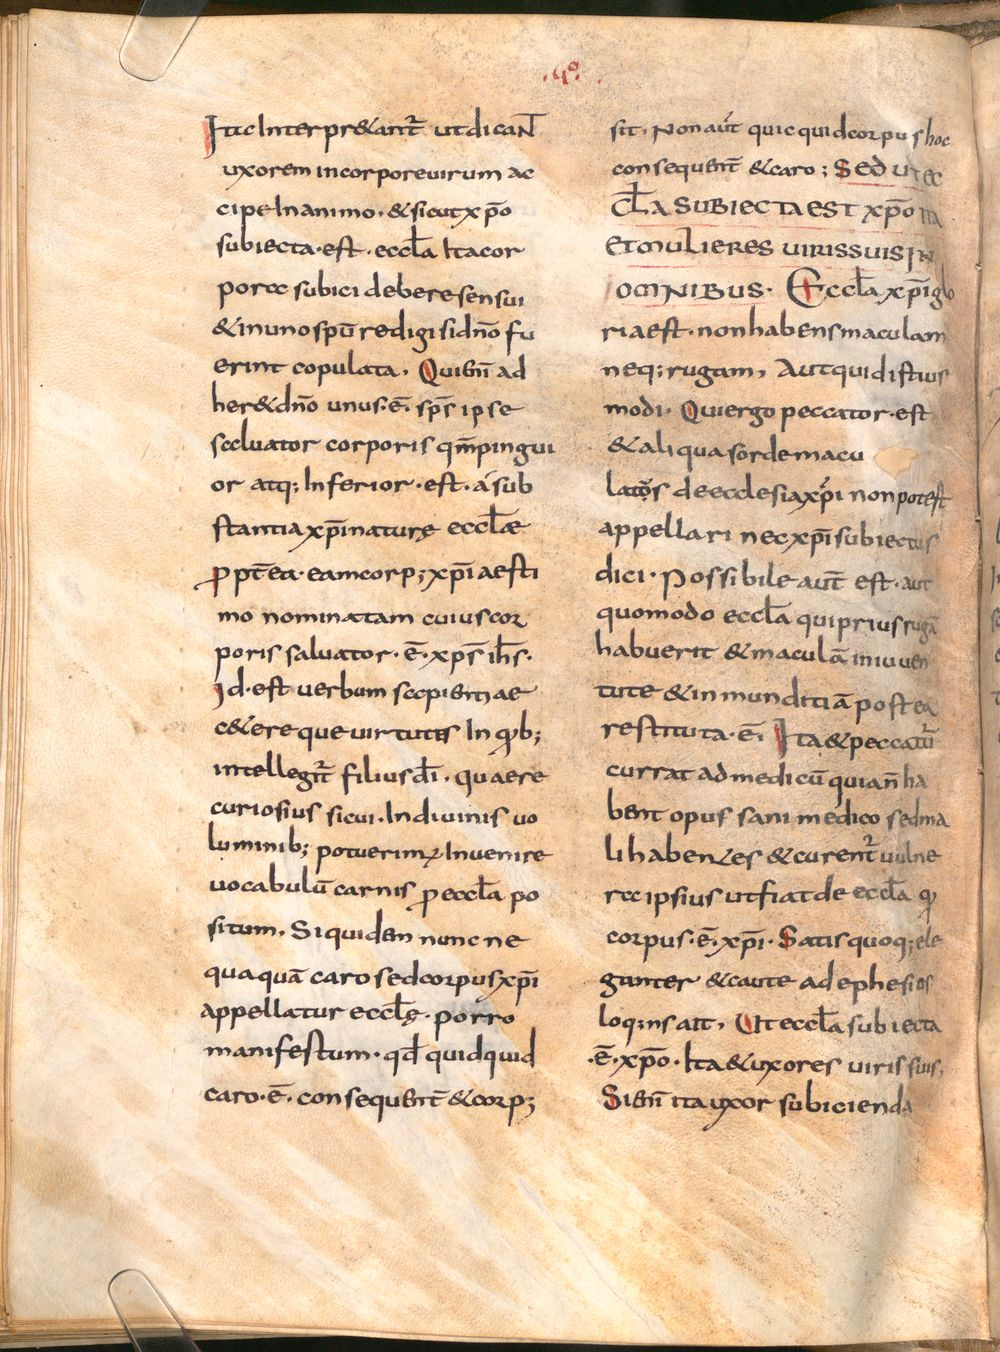 .4º.
Ita Interpr&ant̄ ut dicaN̄
uxorem in corpore uirum ac
cipe In animo. & sicut xp̄o
subiecta·est· eccl̄a Ita cor
pora subici debere sensui
& in uno sp̄u redigi si dn̄o fu
erint copulata. Qui en̄ ad
her& dn̄o unus·ē· sp̄s ipse
saluator corporis qm̄ pingui
or atq; Inferior·est· a sub
stantia xp̄i naturę eccl̄ae
ꝓpt̄ ea· eam corp; xp̄i aesti
mo nominatam cuius cor
poris saluator·ē· xp̄s ih̄s·
Id·est uerbum sapientiae
c&ere que uirtutes In qb;
intellegit̄ filius d̄i· quaere
curiosius sicui· In diuinis uo
luminib; potuerimꝰ Inuenire
uocabulū carnis ꝓ eccl̄a po
situm. Siquidem nunc ne
quaquā caro sed corpus xp̄i
appellatur eccl̄ę· porro
manifestum· qd̄ quidquid
caro·ē· consequent̄ & corp;
sit. Non aūt quicquid corpus hoc
consequent̄ & caro; Sed ut ec
cl̄a subiecta est xp̄o Ita
et mulieres uiris suis IN
omnibus· Eccl̄a xp̄i glo
ria est· non habens maculam
neq; rugam, Aut quid istius
modi· Qui ergo peccator·est
& aliqua sorde macu
latos de ecclesia xp̄i non potest
appellari nec xp̄i subiectus
dici· Possibile aut̄ est· aut
quomodo eccl̄a qui prius rugā
habuerit & maculā in iuuen
tute & in munditiā postea
restituta·ē. Ita & peccatū
currat ad medicū quia n̄ ha
bent opus sani medico sed ma
li habentes & curent̄ uulne
ra ipsius ut fiat de eccl̄a q
corpus·ē· xp̄i· Satis quoq; ele
ganter & caute ad ephesios
loq;ns ait, Ut eccl̄a subiecta
·ē· xp̄o· Ita & uxores uiris suis;
Si en̄ ita uxor subicienda